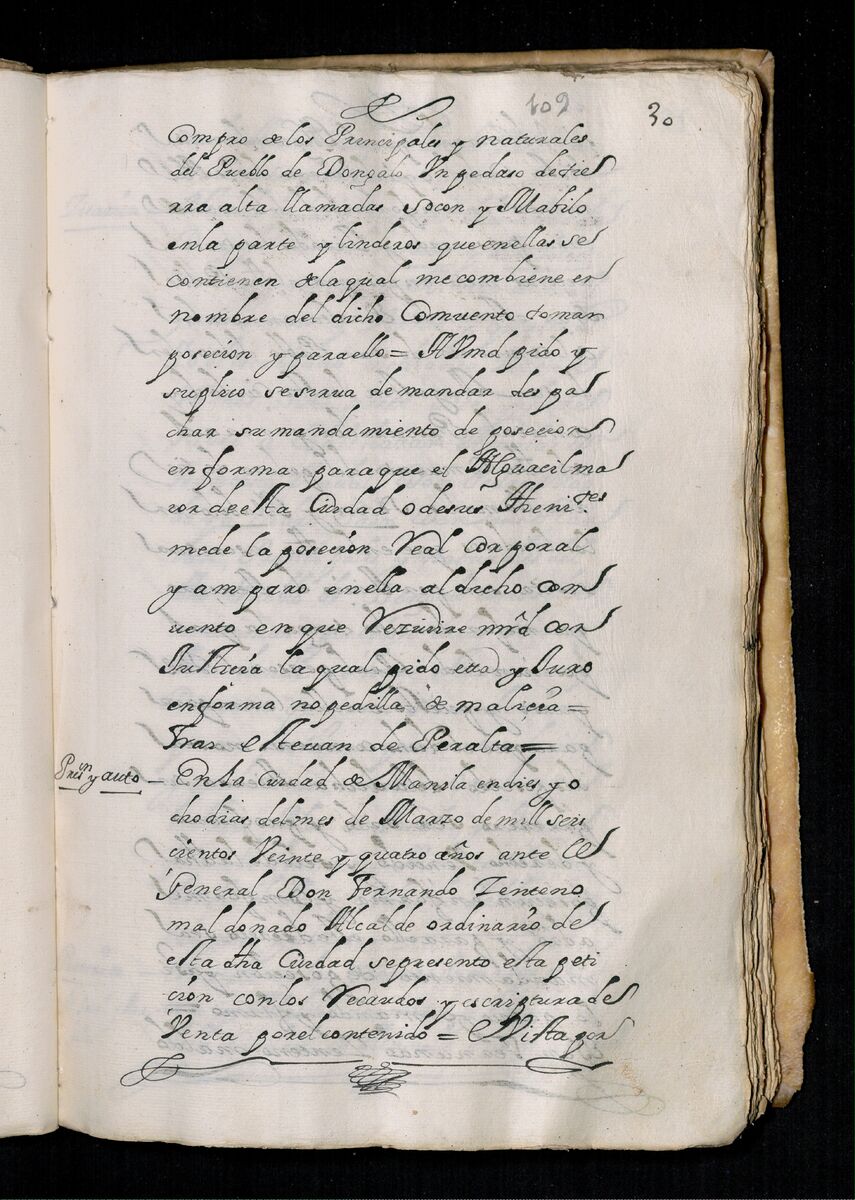 109
30
Compro de los Principales y naturales
del Pueblo de Dongalo Un pedaso de tie
rra alta llamadas Socon y Mabilo
en la parte y linderos que en ellas se
contienen de la qual me combiene en
nombre del dicho Comuento tomar
posecion y para ello = A Vmd pido y
suplico se sirua de mandar des pa
char su mandamiento de posecion
en forma para que el Alguacil ma
ior de esta Ciudad o de sus Theni.tes
me de la posecion Real Corporal
y am paro en ella al dicho con
uento en que Rezivire mrd con
Justicia la qual pido etta y Juro
en forma no pedilla de malicia =
Fray esteuan de Peralta =
Presn y auto – En la Ciudad de Manila en dies y o
cho dias del mes de Marzo de mill seis
cientos Veinte y quatro años ante el
General Don Fernando Zenteno
maldonado Alcalde ordinario de
esta dha Ciudad se presento esta peti
cion con los Recaudos y escriptura de
Venta por el contenido = e Vista por